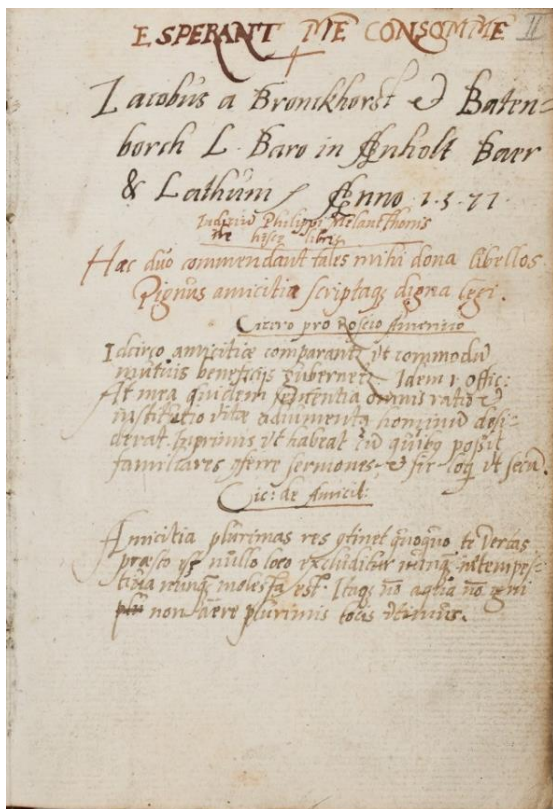 ESPERANT ME CONSOMME II
Iacobus a Bronckhorst et Baten=
borch L. Baro in Anholt Baer
& Lathum / Anno 1.5.77
Iudiciū Philippi Melanthonis
de hisce libris
Haec duo commendant tales mihi dona libellos
Pignus amicitiæ scriptaq; digna legi.
Cicero pro Roscio Amerino
Idcirco amicitiæ comparantr vt commodū
mutuis beneficijs gubernetr. Idem 1 offic:
At mea quidem sententia omnis ratio et
institutio vitæ adiumenta hominum desi-
derat. Inprimis vt habeat cū quibq possit
familiares 9ferre sermones, et sic loqi vt secū.
Cic: de Amicit:
Amicitia plurimas res 9tinet quoquo te vertas
præsto est nullo loco excluditur nunq; intempes-
tiua nunq; molesta est. Itaq; nō aqua nō igni
non aere plurimis locis vtimur.